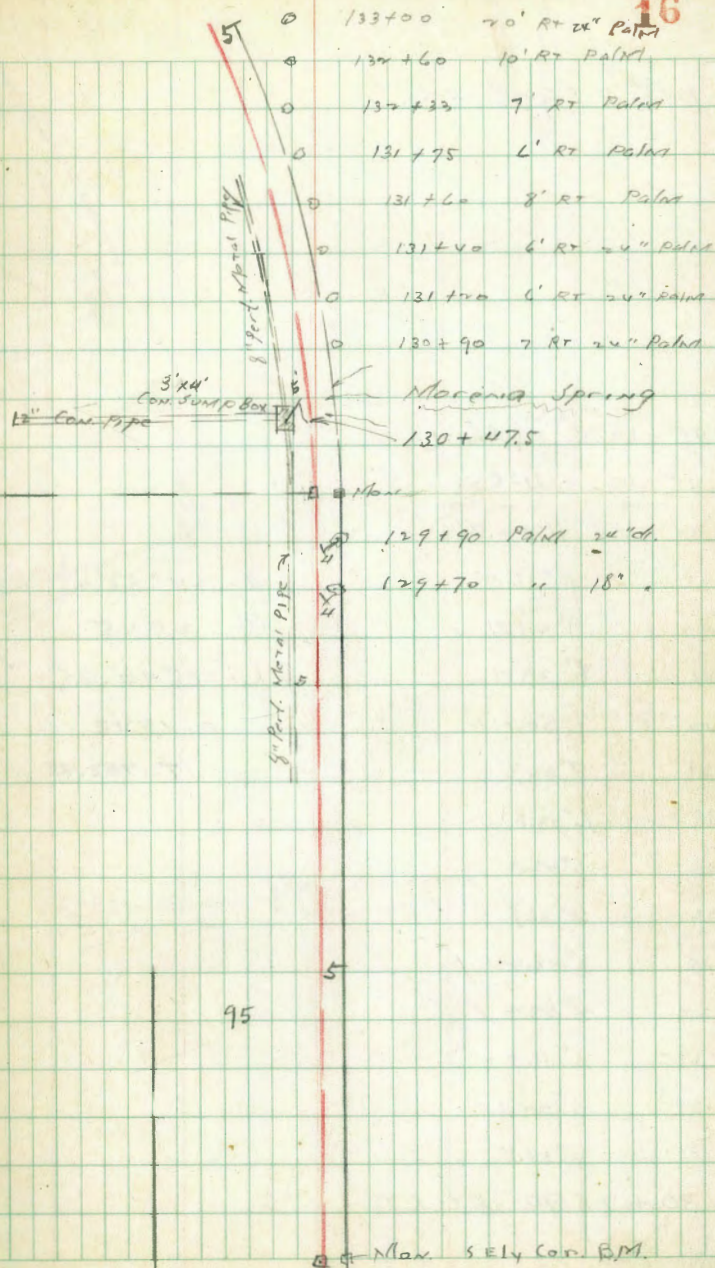 16
5
133+00 20' Rt 24" Palm
132+60 10' Rt Palm
132+33 7' RT Palm
131+75 6' RT Palm
131+60 8' RT Palm
131+40 6' RT 24" Palm
131+20 6' RT 24" Palm
130+90 7 RT 24" Palm
8" Perf. Metal Pipe
3'x4'
Con. Sump Box
6'
12" Con. Pipe
Morena Spring
130+47.5
Mon
129+90 Palm 24" di.
4
129+70 " 18" "
4
8" Perf. Metal Pipe
5
5
95
Mon. SEly Cor. B.M.